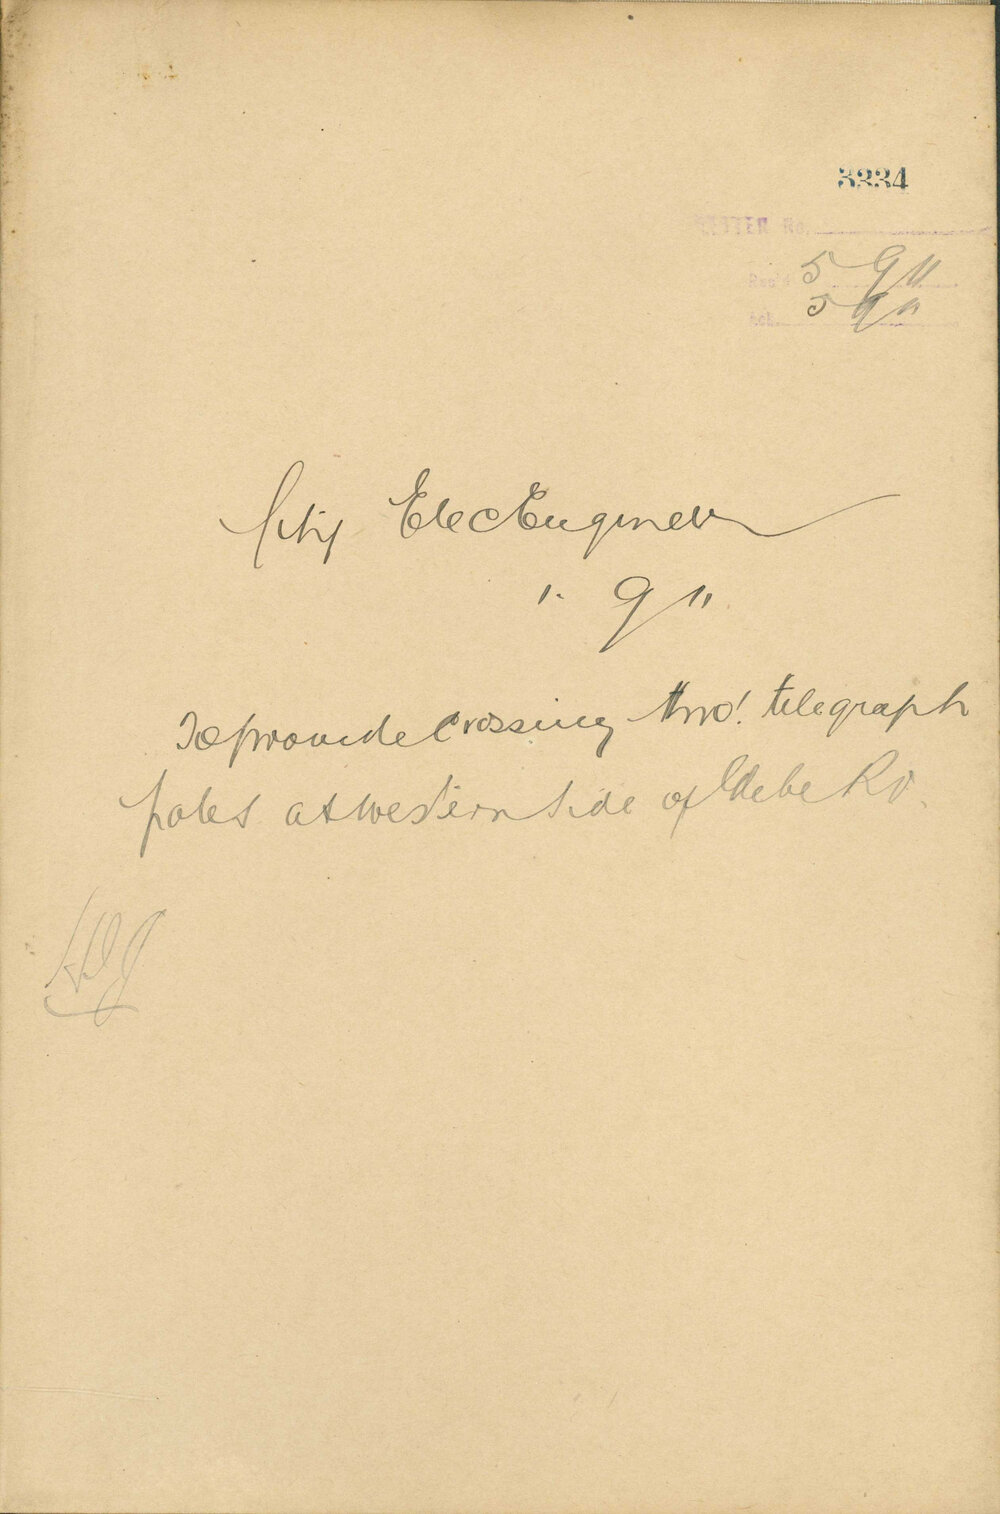 3334
LETTER No.
Rec'd 5 9 11
Ack. 5 9 11
City Elec Engineer
1. 9 11
To provide crossing thro' telegraph
poles at western side of Glebe Rd.